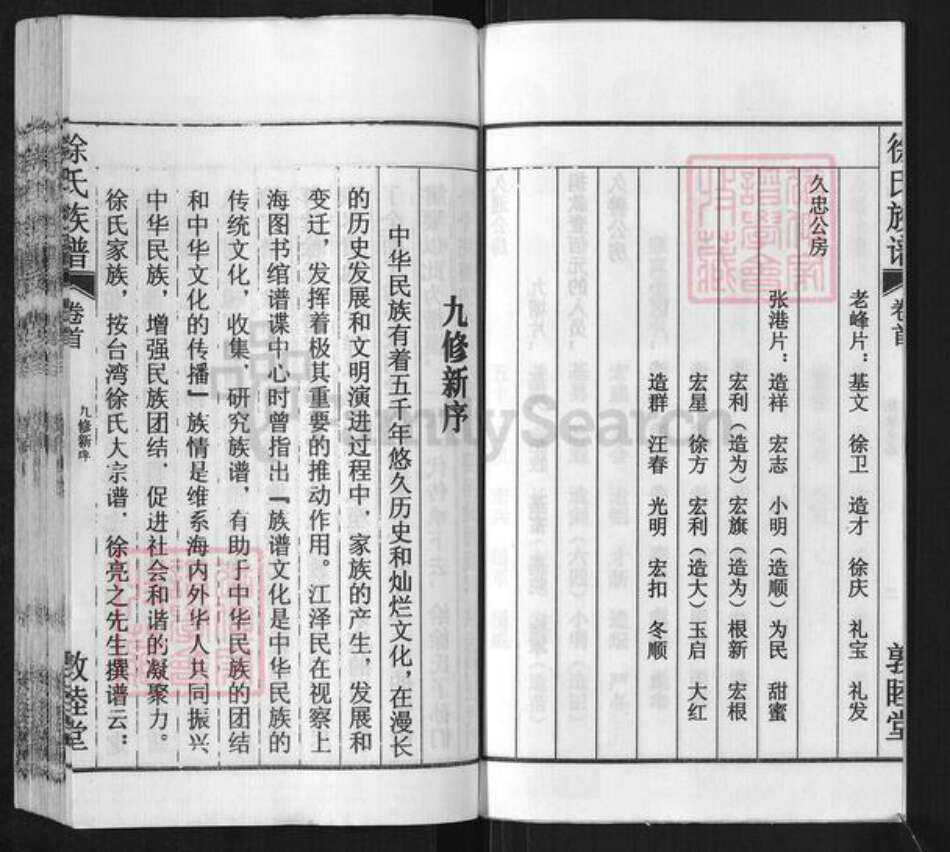 徐氏族谱
卷首
敦睦堂
老峰片：基文 徐卫 造才 徐庆 礼宝 礼发
久忠公房
张港片：造祥 宏志 小明（造顺）为民 甜蜜
宏利（造为）宏旗（造为）根新 宏根
宏星 徐方 宏利（造大）玉启 大红
造群 汪春 光明 宏扣 冬顺
九修新序
中华民族有着五千年悠久历史和灿烂文化，在漫长
的历史发展和文明演进过程中，家族的产生，发展和
变迁，发挥着极其重要的推动作用。江泽民在视察上
海图书绾谱谍中心时曾指出「族谱文化是中华民族的
传统文化，收集，研究族谱，有助于中华民族的团结
和中华文化的传播」族情是维系海内外华人共同振兴
中华民族，增强民族团结．促进社会和谐的凝聚力。
徐氏家族，按台湾徐氏大宗谱．徐亮之先生撰谱云：
徐氏族谱
卷首
九修新序
敦睦堂
FamilySearch